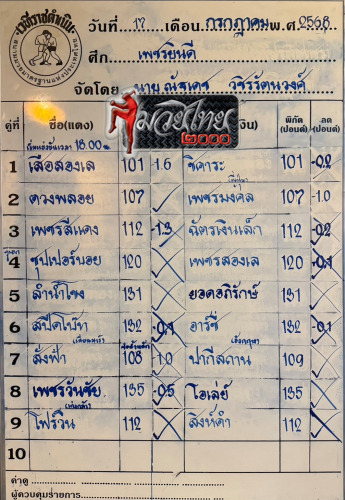 เวทีราชดำเนิน
วันที่ 17 เดือน กรกฎาคม พ.ศ. 2568
ศึก เพชรยินดี
จัดโดย นาย ณัฐเดช วชิรรัตนวงศ์
มวยไทย
2000
คู่ที่ ชื่อ(แดง) พิกัด (ปอนด์) ลด (ปอนด์)
เริ่มแข่งขันเวลา 18.00 น.
1 เสือสองเล 101 -1.6 ชิคาระ 101 -0.2
(ญี่ปุ่น)
2 ดวงพลอย 107 เพชรมงคล 107 -1.0
3 เพชรสีแดง 112 -1.3 ฉัตรเงินเล็ก 112 -0.2
4 ซุปเปอร์บอย 120 เพชรสองเล 120 -0.4
5 ลำน้ำโขง 131 ยอดอภิรักษ์ 131
6 สปีดโบ๊ท 132 -0.4 อาร์ซี 132 -0.1
7 สังฟ้า 108 -1.0 ปากีสถาน 109
8 เพชรวันชัย 135 -0.5 โอเล่ย์ 135
9 โฟร์วิน 112 สิงห์ดำ 112
10
ค่าดู
ผู้ควบคุมรายการ